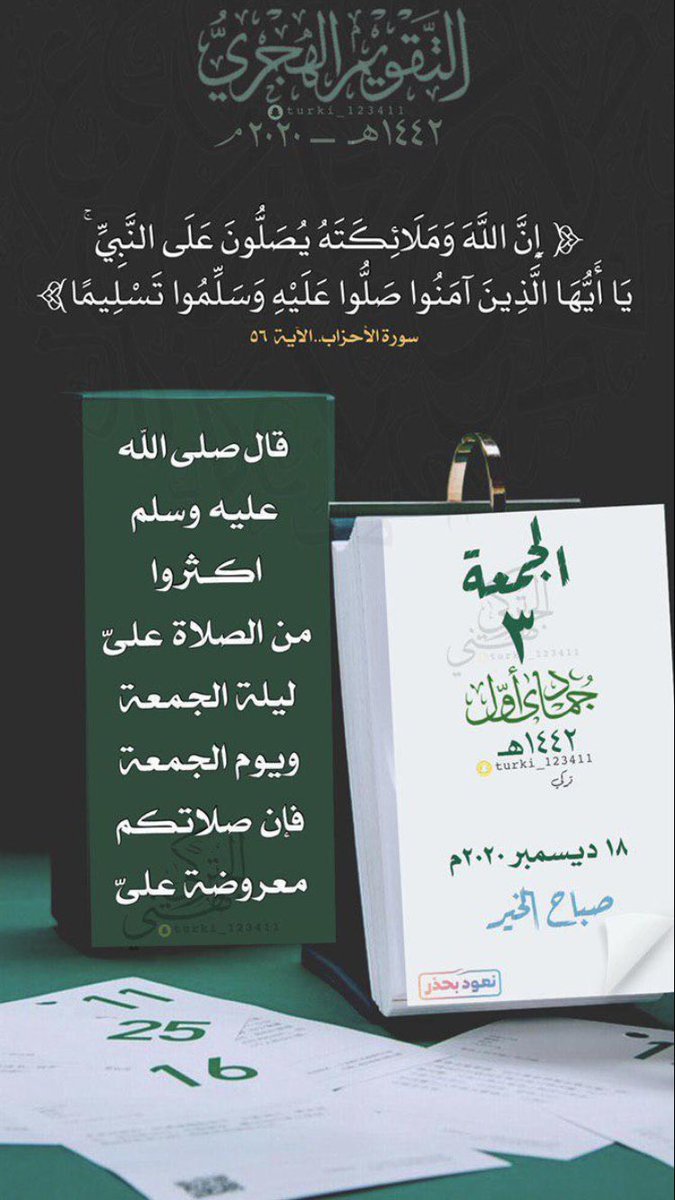 التقويم الهجري
turki_123411
١٤٤٢هـ — ٢٠٢٠م
﴿ إِنَّ اللَّهَ وَمَلَائِكَتَهُ يُصَلُّونَ عَلَى النَّبِيِّ ۚ
يَا أَيُّهَا الَّذِينَ آمَنُوا صَلُّوا عَلَيْهِ وَسَلِّمُوا تَسْلِيمًا ﴾
سورة الأحزاب..الآية ٥٦
قال صلى الله
عليه وسلم
اكثروا
من الصلاة علىّ
ليلة الجمعة
ويوم الجمعة
فإن صلاتكم
معروضة علىّ
turki_123411
الجمعة
٣
turki_123411
جُمادى أوّل
١٤٤٢هـ
turki_123411
تركي
١٨ ديسمبر ٢٠٢٠م
صباح الخير
نعود بحذر
11
25
16